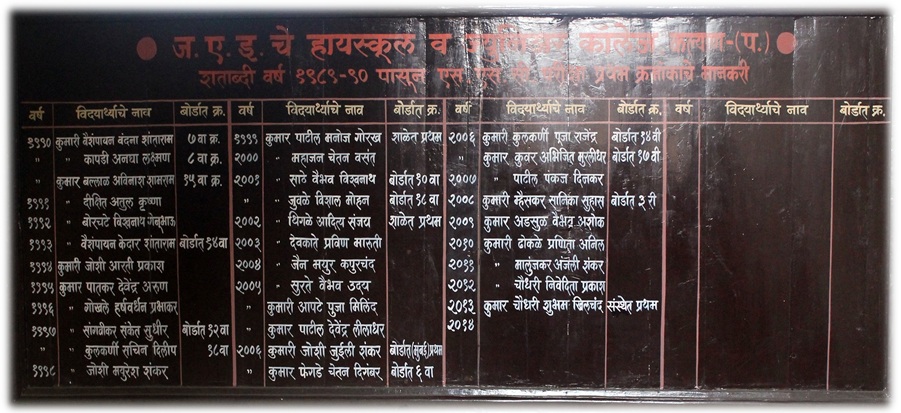 ज. ए. इ. चे हायस्कूल व ज्युनिअर कॉलेज (प.)
शताब्दी वर्ष १९८९-९० पासून एस एस सी परीक्षा प्रथम क्रमांकाचे मानकरी
वर्ष विद्यार्थ्याचे नाव बोर्डात क्र. वर्ष विद्यार्थ्याचे नाव बोर्डात क्र. वर्ष विद्यार्थ्याचे नाव बोर्डात क्र. वर्ष विद्यार्थ्याचे नाव बोर्डात क्र.
१९९० कुमारी वैशंपायन वंदना शांताराम ७ वा क्र. १९९९ कुमार पाटील मनोज गोरख शाळेत प्रथम २००६ कुमारी कुलकर्णी पूजा राजेंद्र बोर्डात १४ वी
" " कापडी अनघा लक्ष्मण ८ वा क्र. २००० " महाजन चेतन वसंत " कुमार कुवर अभिजित मुरलीधर बोर्डात १७ वी
" कुमार बल्लाळ अविनाश शामराम १५ वा क्र. २००१ " साठे वैभव विश्वनाथ बोर्डात १० वा २००७ " पाटील पंकज दिनकर
१९९१ " दीक्षित अतुल कृष्णा " " जुवळे विशाल मोहन बोर्डात १८ वा २००८ कुमारी म्हैसकर सानिका सुहास बोर्डात ३ री
१९९२ " बोरचटे विश्वनाथ गेनूभाऊ २००२ " धिगळे आदित्य संजय शाळेत प्रथम २००९ कुमार अडसुळ वैभव अशोक
१९९३ " वैशंपायन केदार शांताराम बोर्डात १४वा २००३ " देवकाते प्रविण मारुती २०१० कुमारी ढोकळे प्रणिता अनिल
१९९४ कुमारी जोशी आरती प्रकाश २००४ " जैन मयुर कपुरचंद २०११ " मालुंजकर अंजली शंकर
१९९५ कुमार पातकर देवेंद्र अरुण २००५ " सुरते वैभव उदय २०१२ " चौधरी निवेदिता प्रकाश
१९९६ " गोखले हर्षवर्धन प्रभाकर कुमारी आपटे पुजा मिलिंद २०१३ कुमार चौधरी शुभम खिलचंद संस्थेत प्रथम
१९९७ " सांगवीकर संकेत सुधीर बोर्डात १२ वा " कुमार पाटील देवेंद्र लीलाधर २०१४
" " कुलकर्णी सचिन दिलीप १८ वा २००६ कुमारी जोशी जुईली शंकर बोर्डात (मुंबई) प्रथम
१९९८ " जोशी मयुरेश शंकर कुमार फेगडे चेतन दिगंबर बोर्डात ६ वा